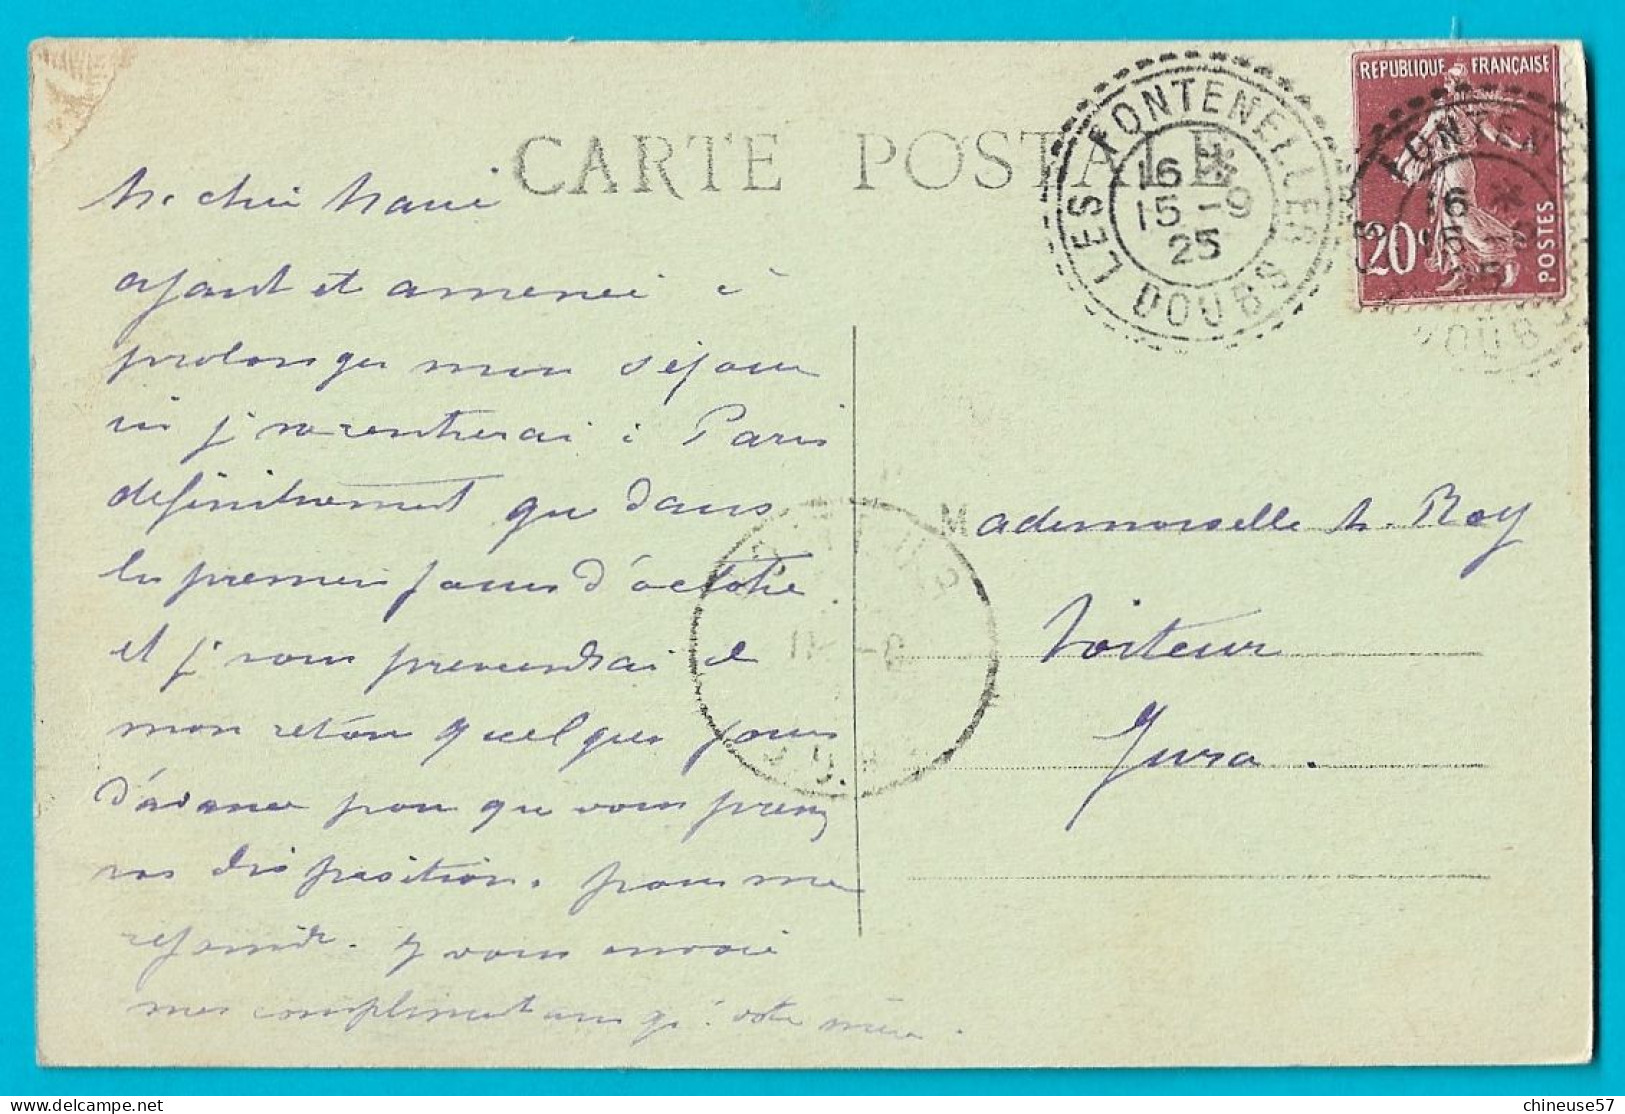 CARTE POSTALE
LES FONTENELLES
16 *
15 - 9
25
DOUBS
REPUBLIQUE FRANÇAISE
20c
POSTES
FONTEN
16 *
25
DOUBS
Ma chère Marie
ayant été amenée à
prolonger mon séjour
ici je ne rentrerai à Paris
définitivement que dans
les premiers jours d'octobre
et je vous préviendrai de
mon retour quelques jours
d'avance pour que vous preniez
vos dispositions pour me
rejoindre. Je vous envoie
mes compliments ainsi qu'à votre mère.
Mademoiselle M. Roy
Voiteur
Jura.
delcampe.net
chineuse57